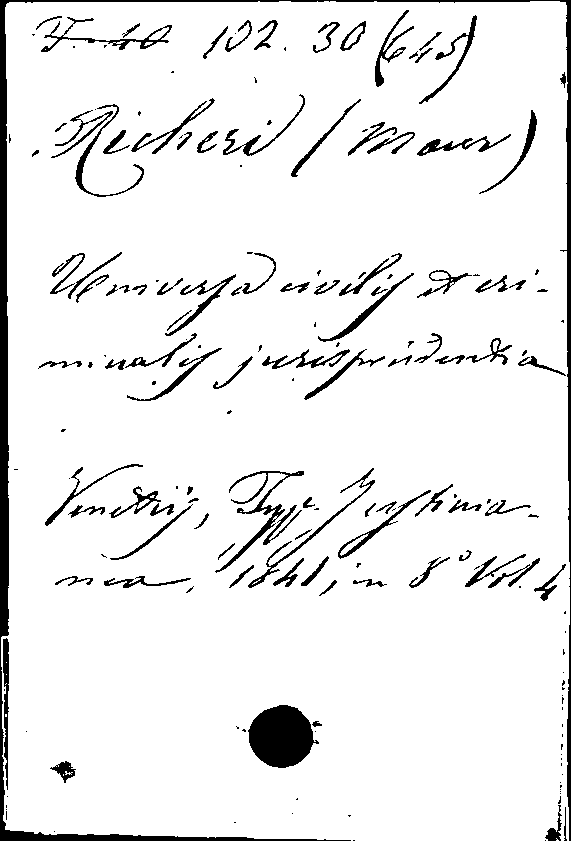 F. 40 102. 30 (645)
Richeri (Maur)
Universa civilis et cri-
minalis jurisprudentia
Venetiis, Typ. Justinia-
nea, 1841, in 8° Vol. 4